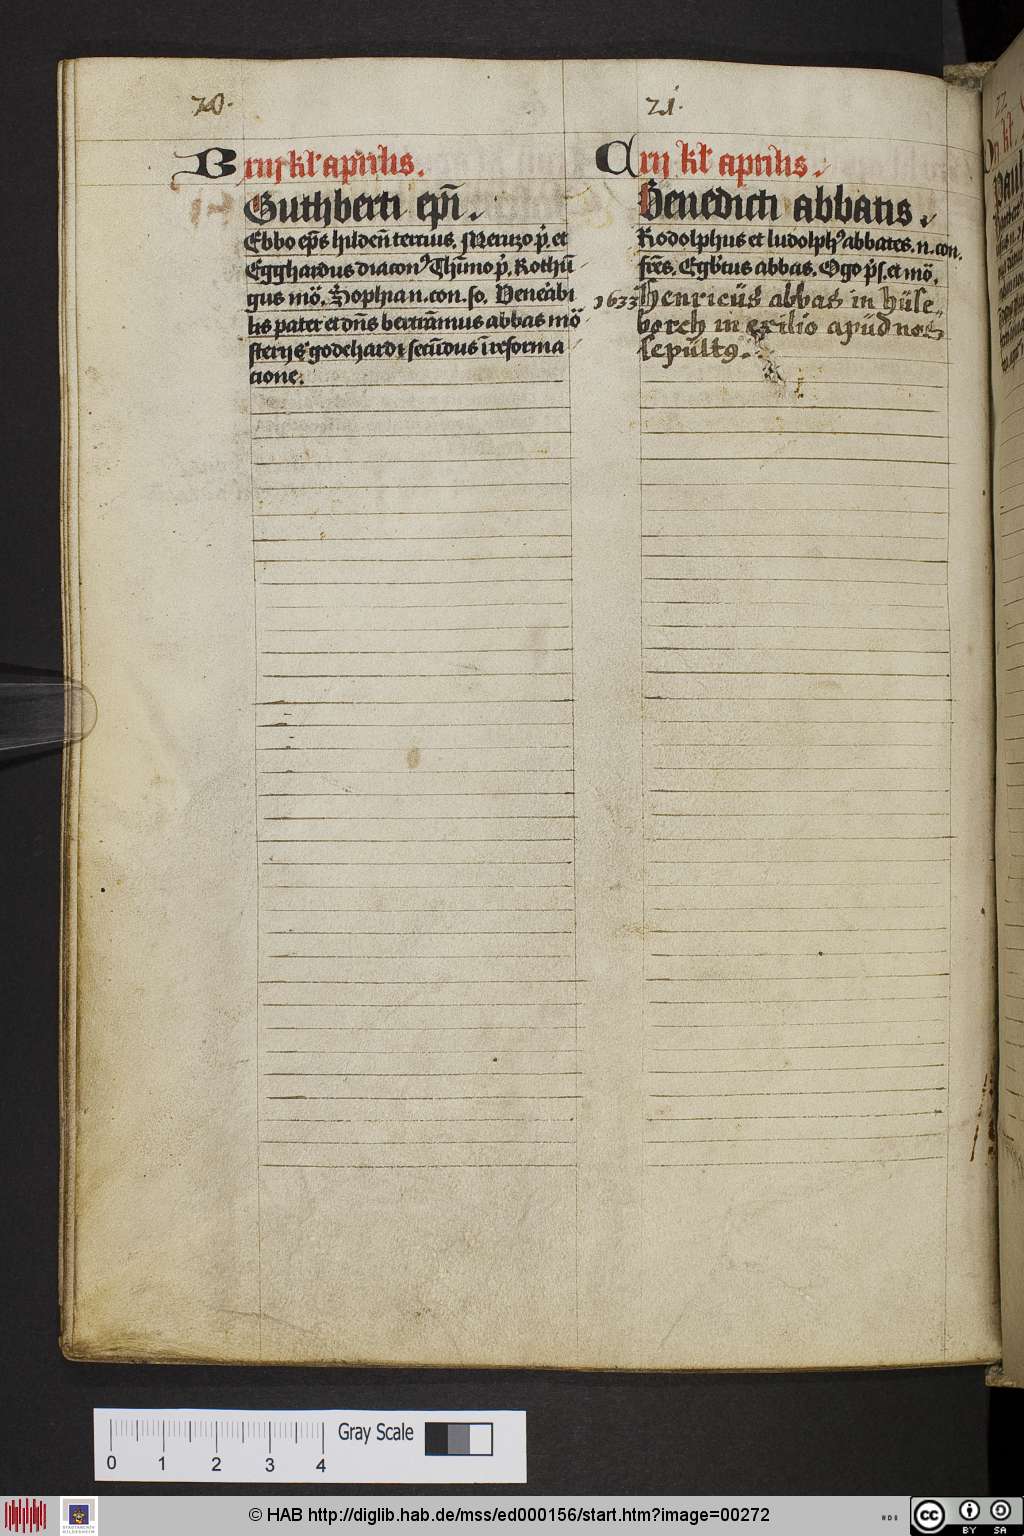 20.
B xiij kl' aprilis.
Guthberti ep̄i.
Ebbo ep̄s hildeñ tertius. Meinzo p̄. et
Egghardus diacon9 Thi̅mo p̄. Rothu̅
gus mō. Sophia n. con. so. Venerabi
lis pater et dn̄s bertra̅mus abbas mō
sterij s' godehardi secu̅dus i̅ reforma
cione.
21.
C xij kl' aprilis.
Benedicti abbatis.
Rodolphus et ludolph9 abbates. n. con.
fr̄es. Egb'tus abbas. Ogo p̄s. et mō.
1633 Henricūs abbas in Hūse„
borch in exilio apūd nos
sepūlt9.
0 1 2 3 4
Gray Scale
© HAB http://diglib.hab.de/mss/ed000156/start.htm?image=00272
cc BY SA